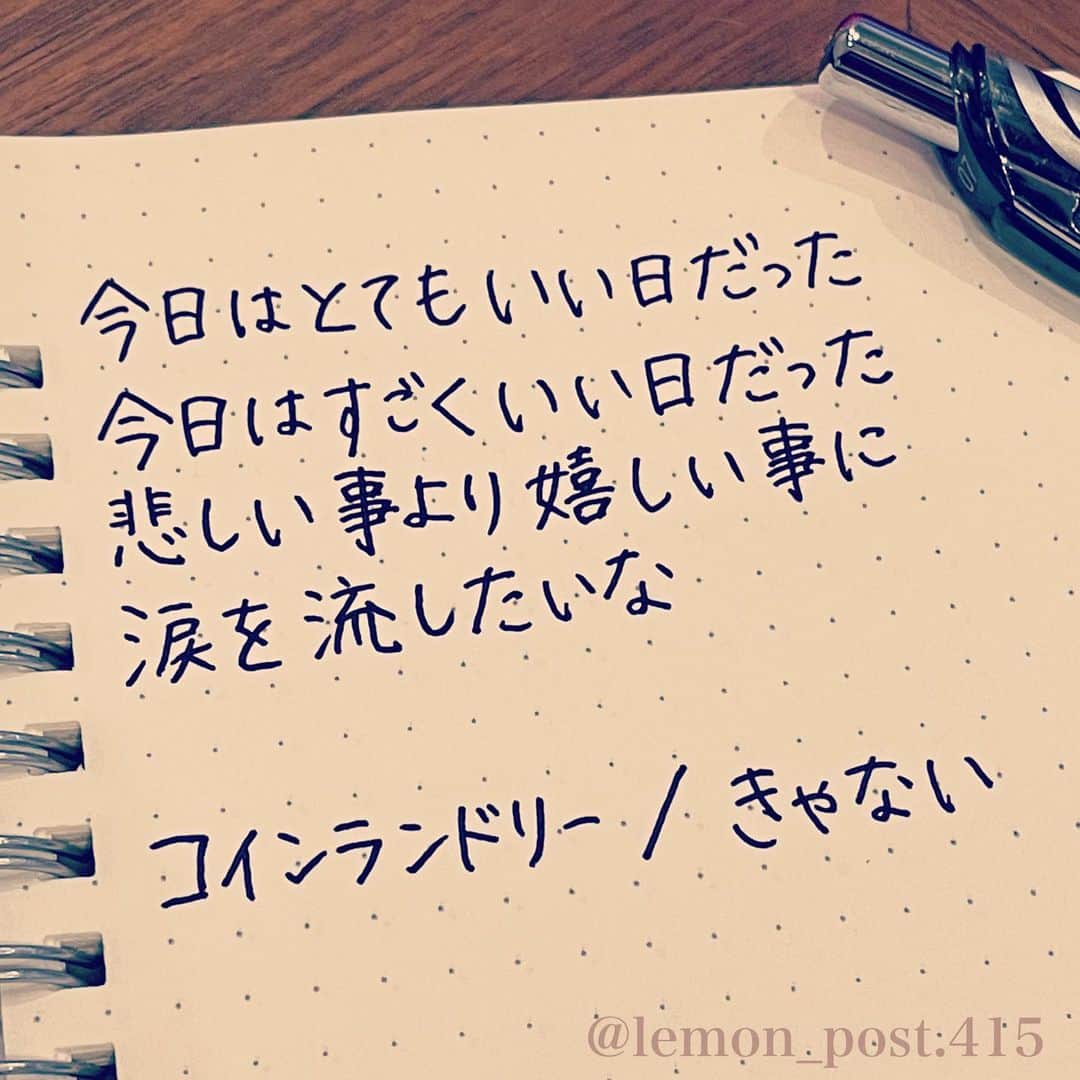 今日はとてもいい日だった
今日はすごくいい日だった
悲しい事より嬉しい事に
涙を流したいな
コインランドリー/きゃない
07
@lemon_post.415